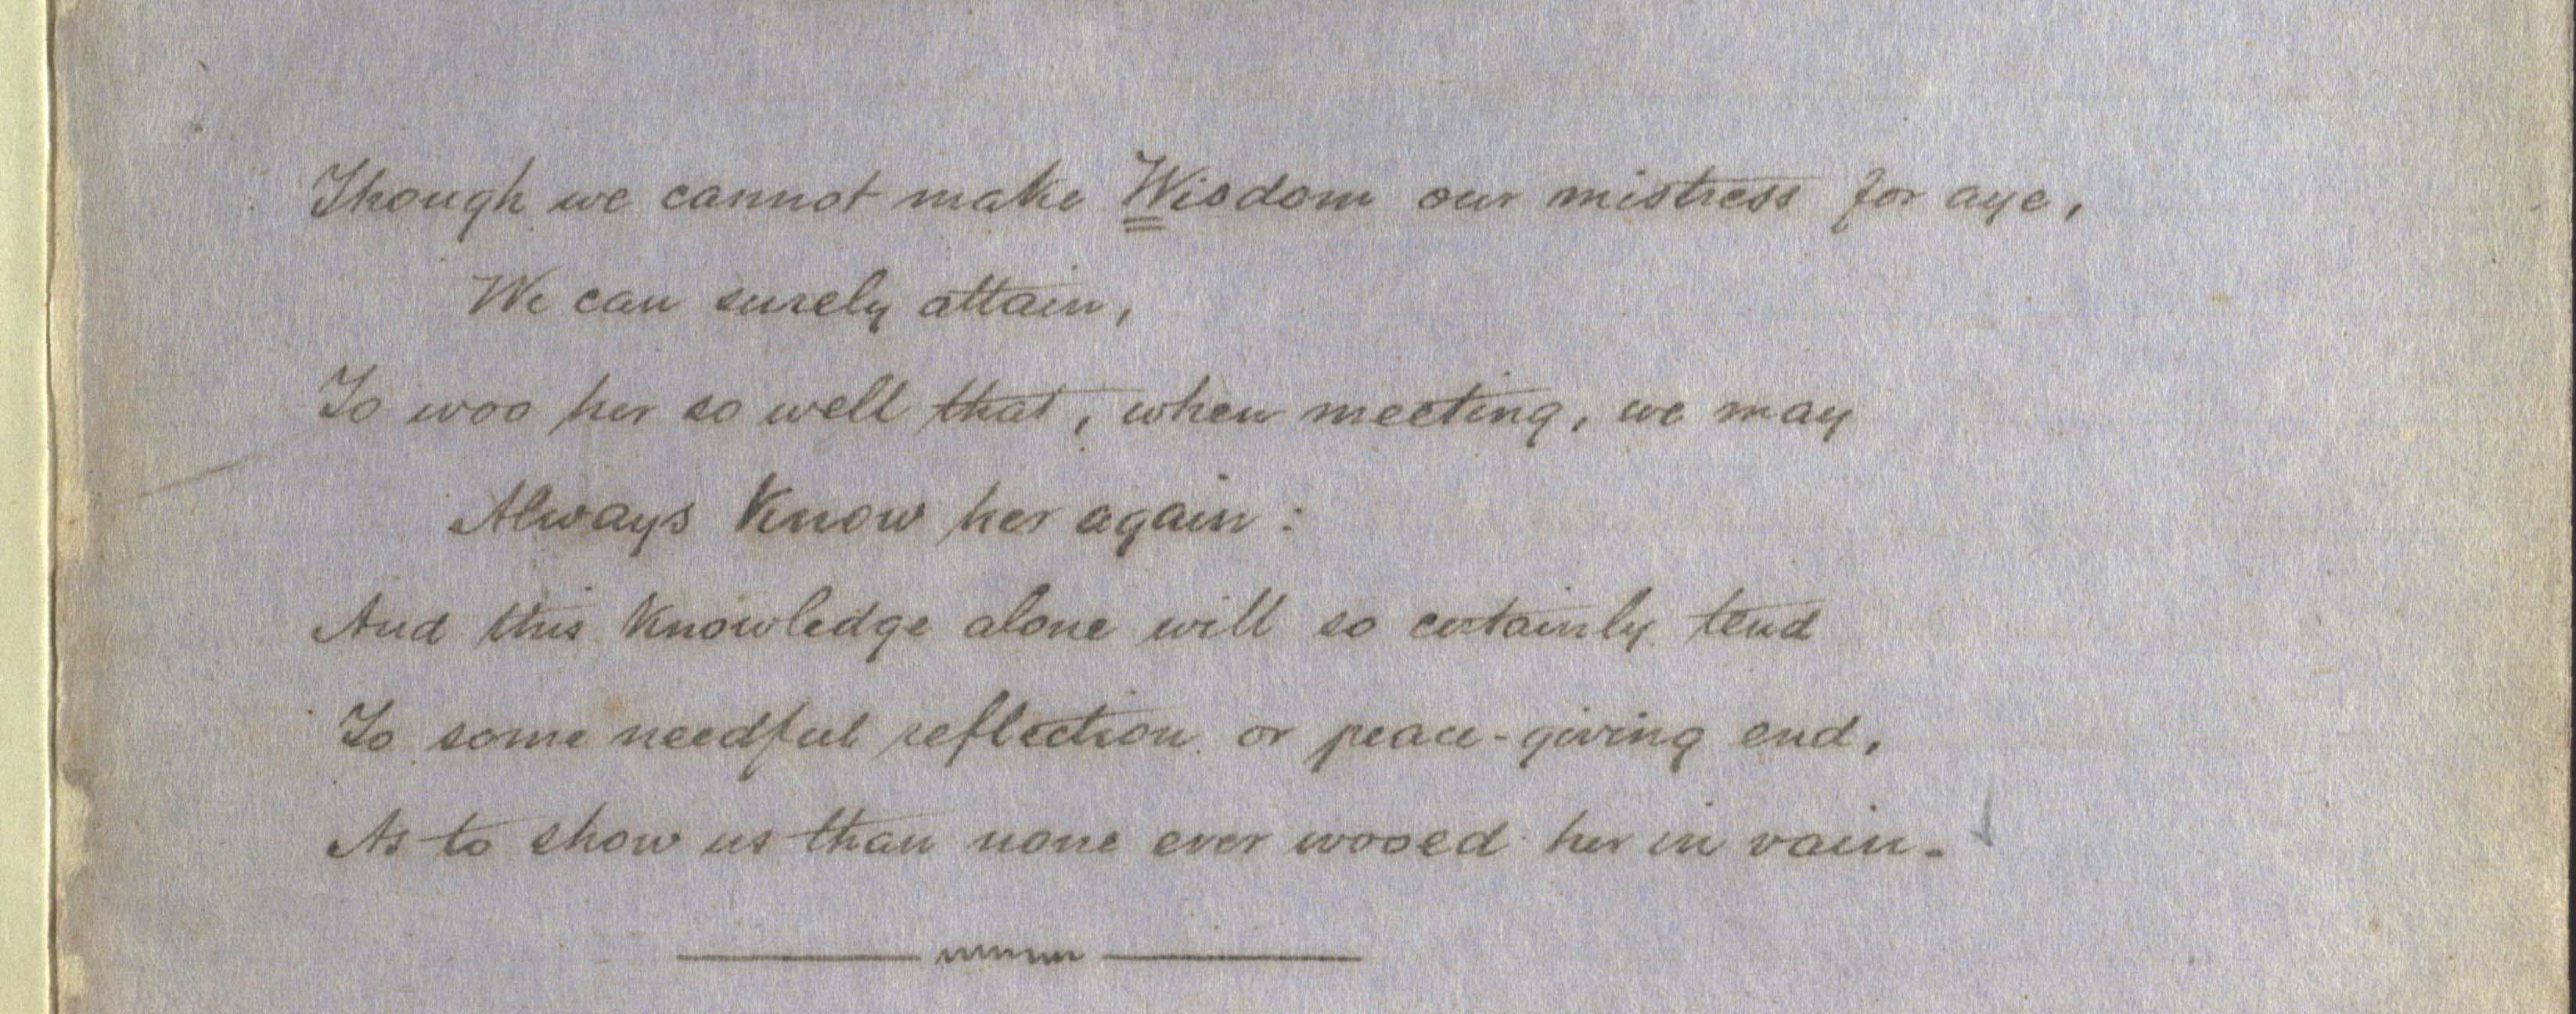 Though we cannot make Wisdom our mistress for aye,
We can surely attain,
To woo her so well that, when meeting, we may
Always know her again:
And this knowledge alone will so certainly tend
To some needful reflection or peace-giving end,
As to show us than none ever wooed her in vain.